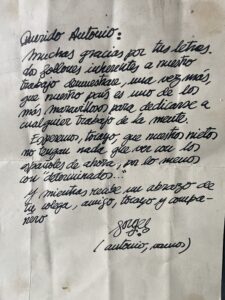 Querido Antonio:
Muchas gracias por tus letras.
los follones inherentes a nuestro
trabajo demuestran, una vez más,
que nuestro país es uno de los
más maravillosos para dedicarse a
cualquier trabajo de la mente.
Esperemos, tocayo, que nuestros nietos
no tengan nada que ver con los
españoles de ahora, por lo menos
con "determinados..."
Y mientras recibe un abrazo de
tu colega, amigo, tocayo y compa-
ñero
Jorge
(Antonio, vamos)